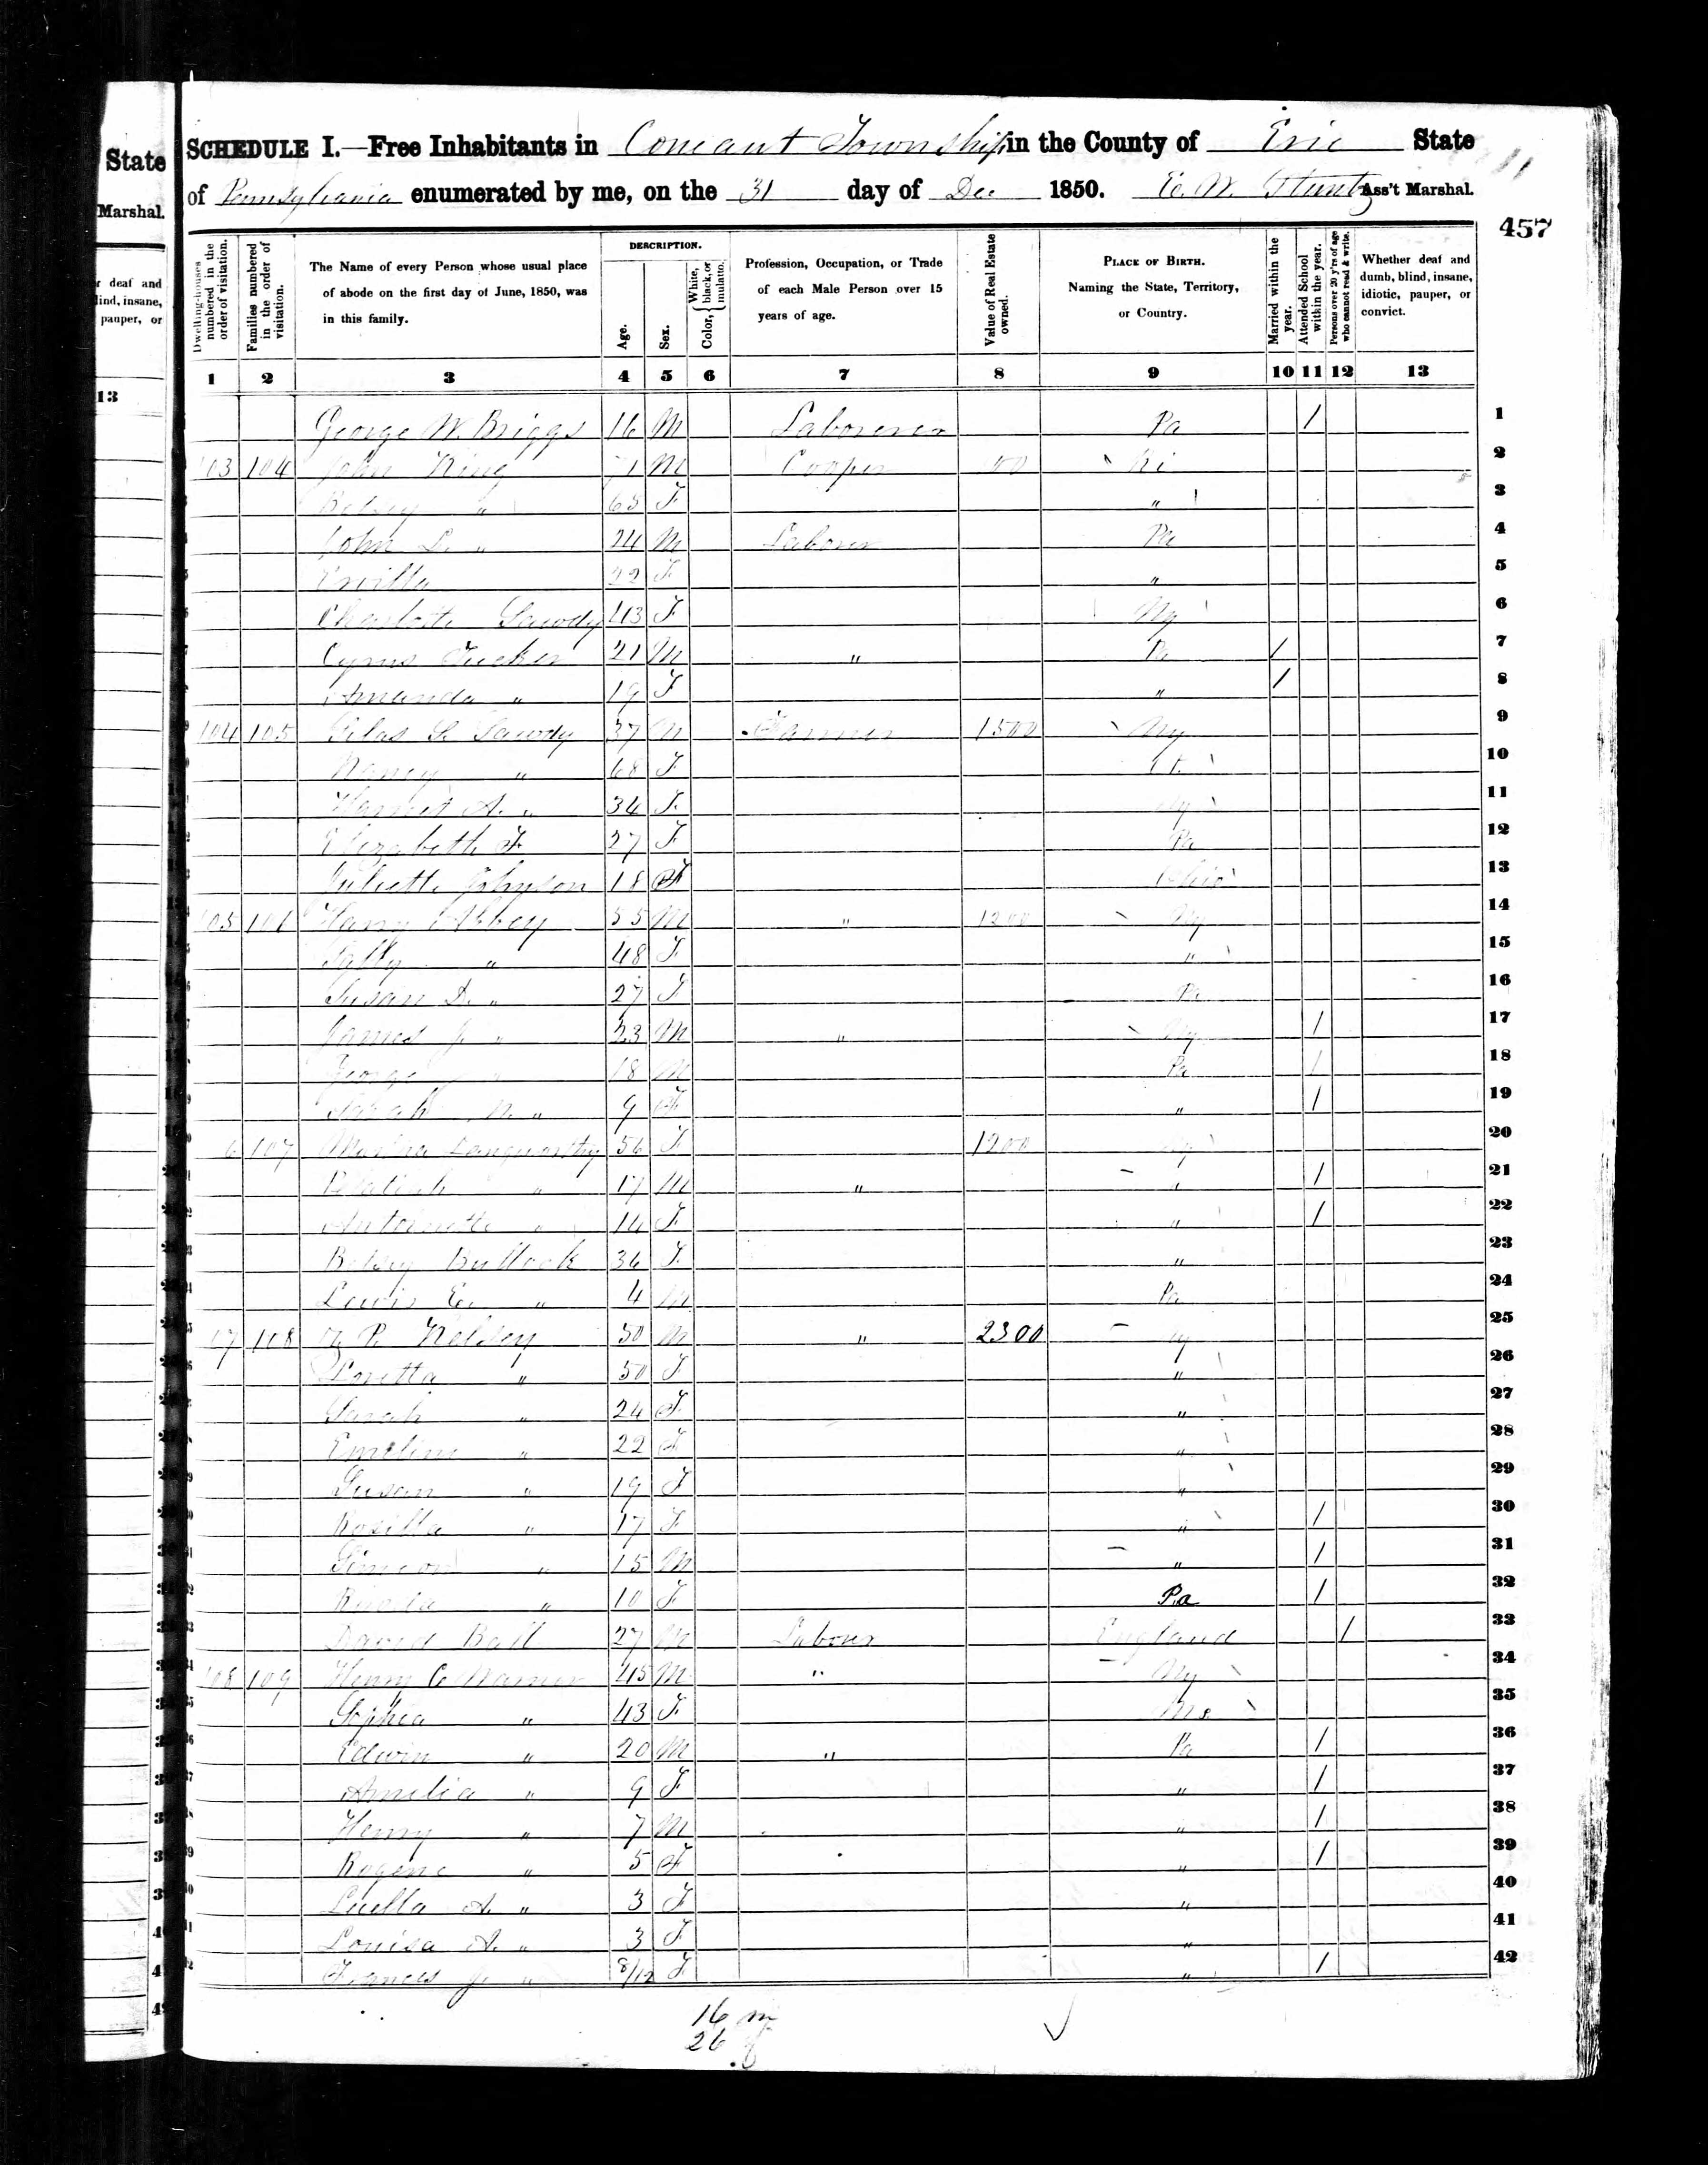 State
Marshal.
r deaf and
lind, insane,
pauper, or
13
SCHEDULE I.—Free Inhabitants in Coneaut Township in the County of Erie State
of Pennsylvania enumerated by me, on the 31 day of Dec 1850. E. W. Stuntz Ass't Marshal.
11
457
Dwelling-houses numbered in the order of visitation.
Families numbered in the order of visitation.
The Name of every Person whose usual place of abode on the first day of June, 1850, was in this family.
DESCRIPTION.
Age.
Sex.
Color, { White, black, or mulatto.
Profession, Occupation, or Trade of each Male Person over 15 years of age.
Value of Real Estate owned.
PLACE OF BIRTH. Naming the State, Territory, or Country.
Married within the year.
Attended School within the year.
Persons over 20 y'rs of age who cannot read & write.
Whether deaf and dumb, blind, insane, idiotic, pauper, or convict.
1 2 3 4 5 6 7 8 9 10 11 12 13
George W. Briggs 16 M Pa 1 1
103 104 John King 71 M Cooper Ri 2
Betsey " 65 F " 3
John L. " 24 M Laborer Pa 4
22 F " 5
Charlotte 43 F Ny 6
Cyrus Tucker 21 M " Pa 1 7
Amanda " 19 F " 1 8
104 105 Silas S. 37 M Farmer 1500 Ny 9
Nancy " 68 F 10
Harriet A. " 34 F Ny 11
Elizabeth F 27 F Pa 12
Juliette Johnson 18 F Ohio 13
105 Harry Abbey 55 M " 1200 Ny 14
Sally " 48 F " 15
Susan D. " 27 F Pa 16
James J. " 23 M " Ny 1 17
George " 18 M Pa 1 18
Sarah " 9 F " 1 19
6 107 Langworthy 56 F 1200 Ny 20
" 17 M " " 1 21
Antoinette " 14 F " 1 22
Betsey Bullock 36 F " 23
Lewis E. " 4 M Pa 24
17 108 P. Kelsey 50 M " 2300 Ny 25
Loretta " 50 F " 26
Sarah " 24 F " 27
Emeline " 22 F " 28
Susan " 19 F " 29
Rosilla " 17 F " 1 30
Simeon " 15 M " 1 31
" 10 F Pa 1 32
David Ball 27 M Labour England 1 33
108 109 Henry C Warner 45 M " Ny 34
Sophia " 43 F Ms 35
Edwin " 20 M " Pa 1 36
Amelia " 9 F " 1 37
Henry " 7 M " 1 38
Rogene " 5 F " 1 39
Luella A. " 3 F " 40
Louisa A. " 3 F " 41
Frances J. " 8/12 F " 1 42
16 m
26 f